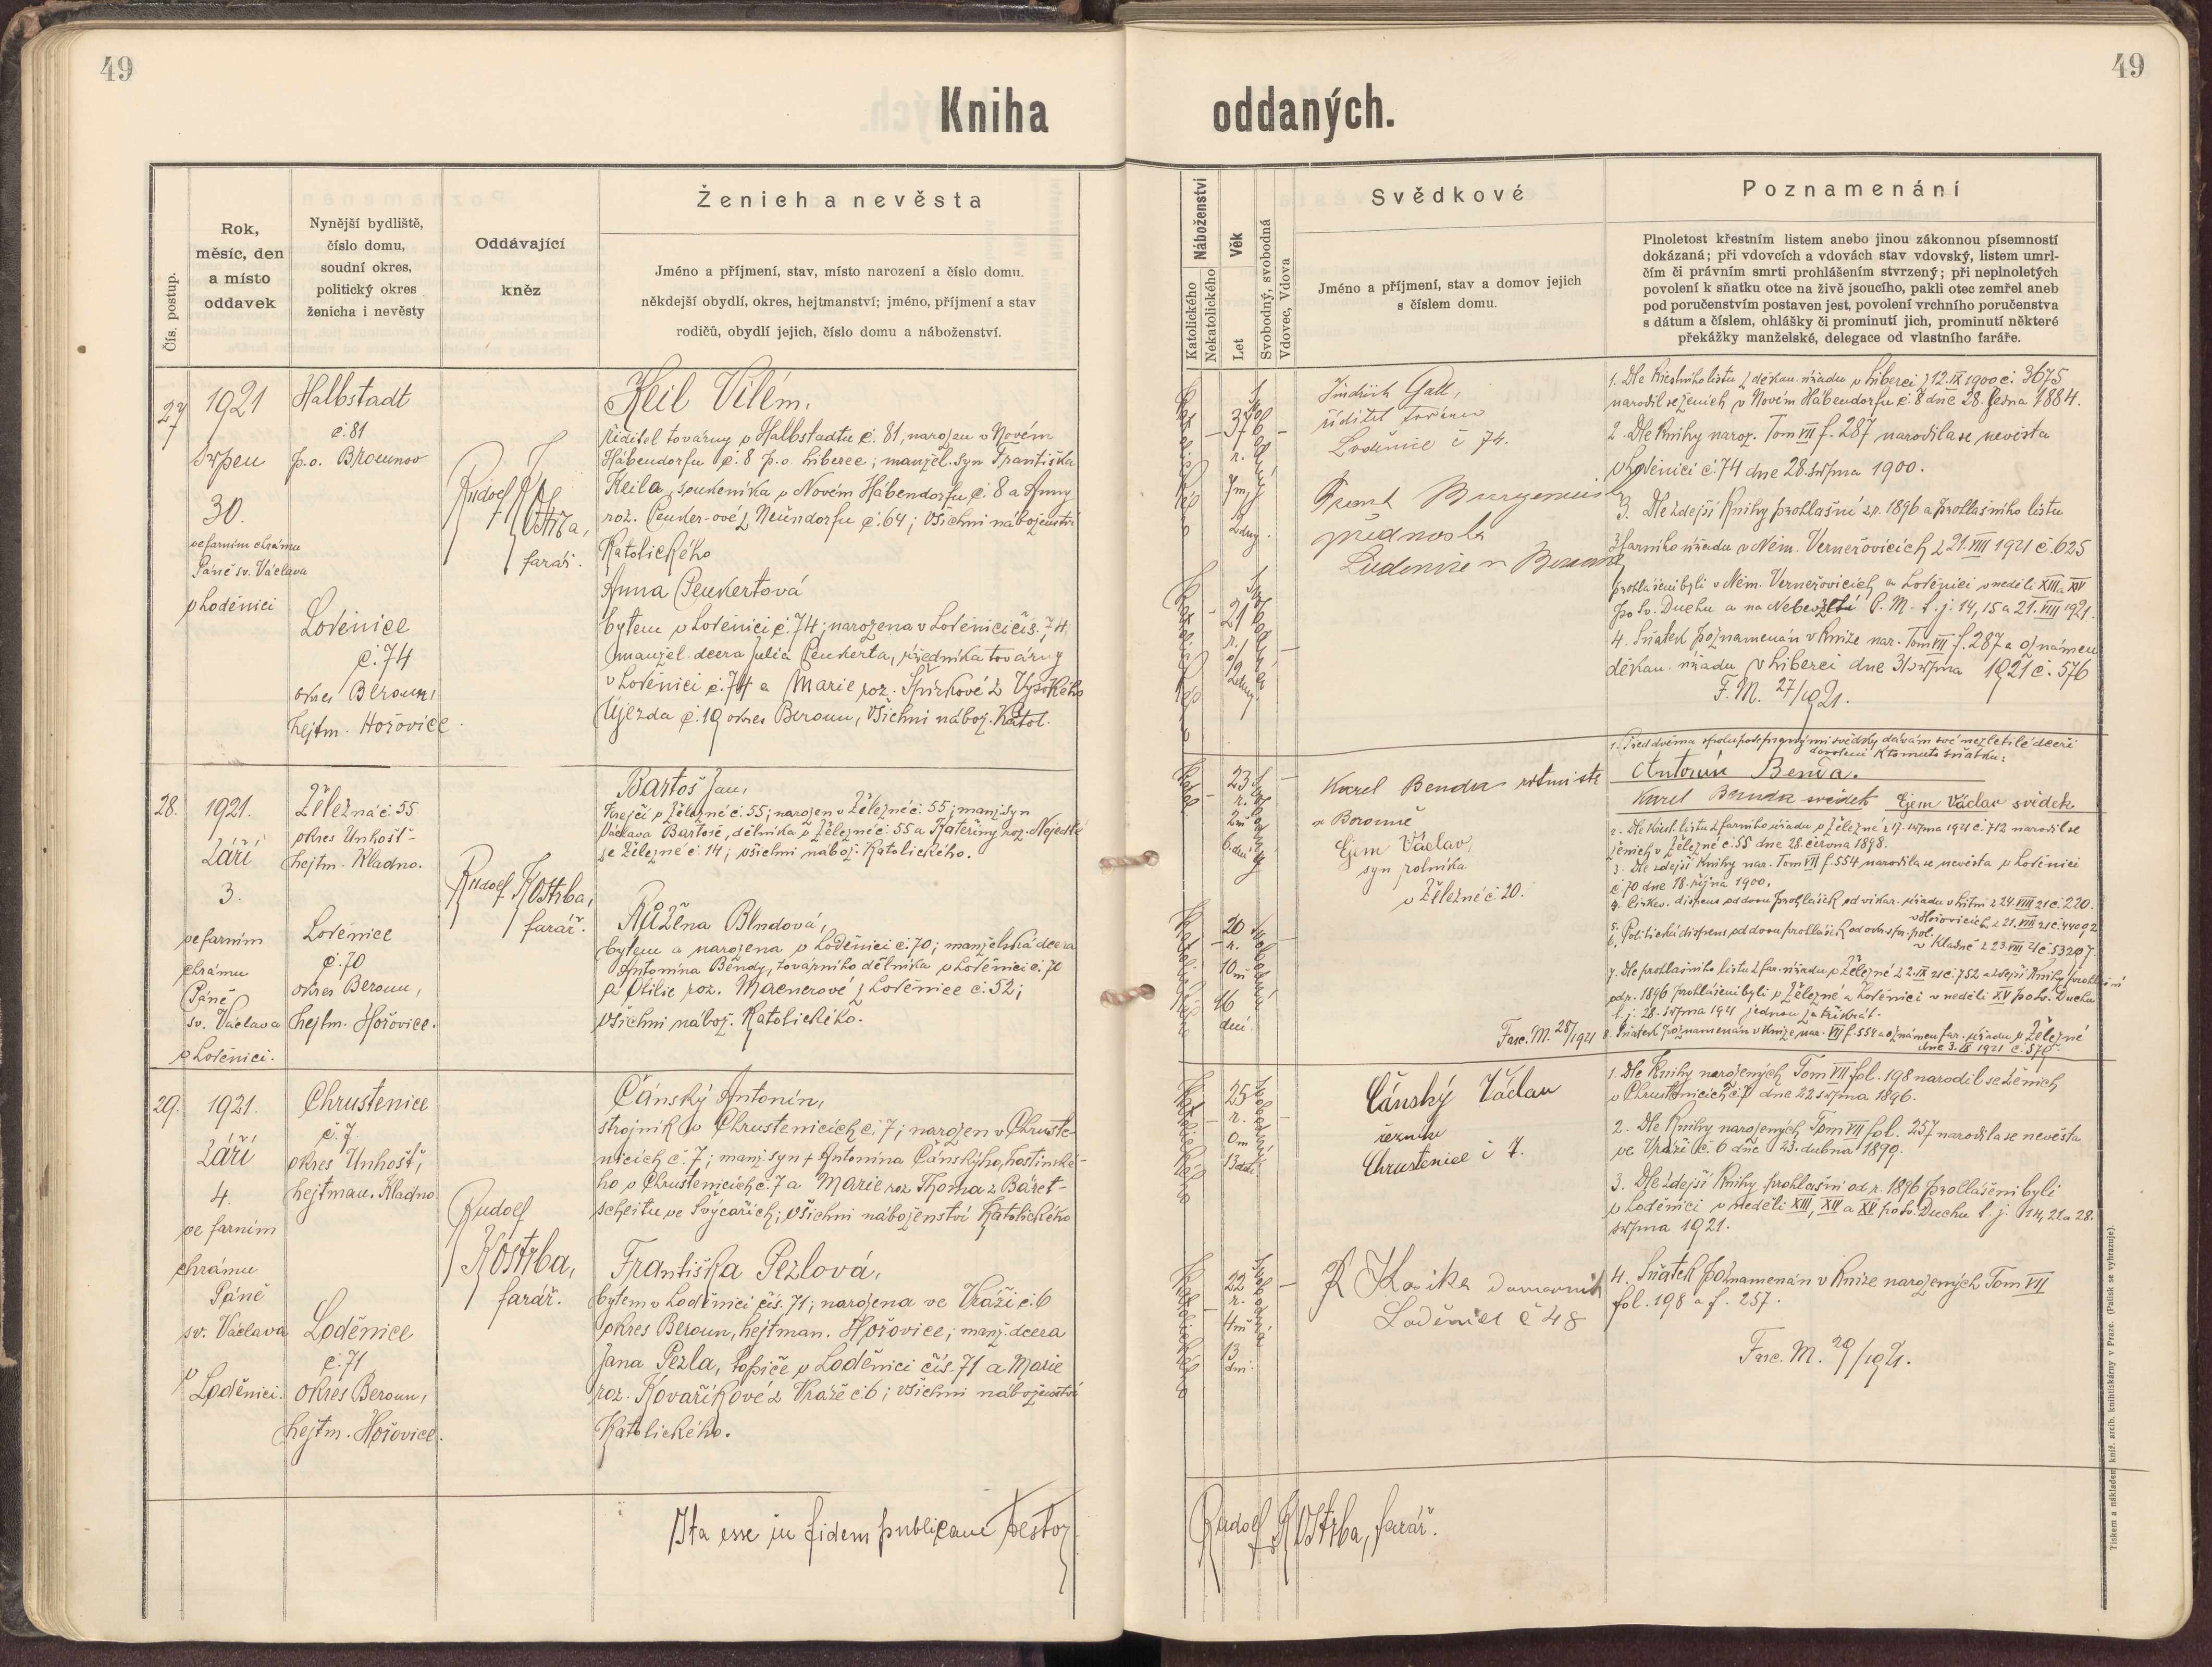 49
49
Kniha oddaných.
Čís. postup.
Rok,
měsíc, den
a místo
oddavek
Nynější bydliště,
číslo domu,
soudní okres,
politický okres
ženicha i nevěsty
Oddávající
kněz
Ženich a nevěsta
Jméno a příjmení, stav, místo narození a číslo domu.
někdejší obydlí, okres, hejtmanství; jméno, příjmení a stav
rodičů, obydlí jejich, číslo domu a náboženství.
Náboženství
Katolického
Nekatolického
Věk
Let
Svobodný, svobodná
Vdovec, Vdova
Svědkové
Jméno a příjmení, stav a domov jejich
s číslem domu.
Poznamenání
Plnoletost křestním listem anebo jinou zákonnou písemností
dokázaná; při vdovcích a vdovách stav vdovský, listem umrl-
čím či právním smrti prohlášením stvrzený; při neplnoletých
povolení k sňatku otce na živě jsoucího, pakli otec zemřel aneb
pod poručenstvím postaven jest, povolení vrchního poručenstva
s dátum a číslem, ohlášky či prominutí jich, prominutí některé
překážky manželské, delegace od vlastního faráře.
27
1921
srpen
30.
ve farním chrámu
Páně sv. Václava
v Loděnici
Halbstadt
č. 81
p. o. Broumov
Loděnice
č. 74
okres Beroun,
hejtm. Hořovice.
Rudolf Kostrba,
farář.
Keil Vilém,
ředitel továrny v Halbstadtu č. 81, narozen v Novém
Hábendorfu č. 8 p. o. Liberec; manžel. syn Františka
Keila, soukeníka v Novém Hábendorfu č. 8 a Anny
roz. Peuker-ové z Neundorfu č. 64; všichni náboženství
Katolického
Anna Peukertová
bytem v Loděnici č. 74; narozena v Loděnici čís. 74
manžel. dcera Julia Peukerta, úředníka továrny
v Loděnici č. 74 a Marie roz. Špízkové z Vysokého
Újezda č. 19 okres Beroun, všichni nábož. Katol.
Katolického
37
r.
7 m.
2 dny.
Svobodný
Katolického
21
r.
2 dny.
Svobodná
Jindřich Gall,
ředitel továrny
Loděnice č 74.
přednosta
1. Dle křestního listu z děkan. úřadu v Liberci z 12. IX 1900 č. 3675
narodil se ženich v Novém Hábendorfu č. 8 dne 28. ledna 1884.
2. Dle Knihy naroz. Tom VII f. 287 narodila se nevěsta
v Loděnici č. 74 dne 28. srpna 1900.
3. Dle zdejší Knihy prohlášní z r. 1896 a prohlašního listu
z farního úřadu v Něm. Verneřovicích z 21. VIII 1921 č. 625
prohlášeni byli v Něm. Verneřovicích a Loděnici v neděli XIII a XV
po Sv. Duchu a na Nebevzetí P. M. t. j. 14, 15 a 21. VIII 1921.
4. Sňatek poznamenán v Knize nar. Tom VII f. 287 a oznámen
děkan. úřadu v Liberci dne 31 srpna 1921 č. 576
F. M. 27/1921.
28.
1921.
Září
3.
ve farním
chrámu
Páně
sv. Václava
v Loděnici.
Železná č. 55
okres Unhošť-
hejtm. Kladno.
Loděnice
č. 70
okres Beroun,
hejtm. Hořovice.
Rudolf Kostrba,
farář.
Bartoš Jan,
Krejčí v Železné č. 55; narozen v Železné č. 55; manž. syn
Václava Bartoše, dělníka v Železné č. 55 a Kateřiny roz. Nejedlé
ze Železné č. 14; všichni nábož. Katolického.
Růžena Bendová,
bytem a narozena v Loděnici č. 70; manželská dcera
Antonína Bendy, továrního dělníka v Loděnici č. 70
a Otilie roz. Macnerové z Loděnice č. 52;
všichni nábož. Katolického.
Katol.
23
r.
2 m
6 dní
Svobodný
Katolického
20
r.
10 m
16
dní
Svobodná
Karel Benda
v Berouně
Ejem Václav,
syn rolníka
v Železné č. 20.
1. Před dvěma spolupodepsanými svědky dávám své nezletilé dceři
dovolení k tomuto sňatku:
Antonín Benda.
Karel Benda svědek Ejem Václav svědek
2. Dle křest. listu z farního úřadu v Železné z 17. srpna 1921 č. 712 narodil se
ženich v Železné č. 55 dne 28. června 1898.
3. Dle zdejší Knihy nar. Tom VII f. 554 narodila se nevěsta v Loděnici
č. 70 dne 18. října 1900.
4. Církev. dispens od dvou prohlášek od vikar. úřadu z 24. VIII 21 č. 220.
5. v Hořovicích z 21. VIII 21 č. 44092
6. Politická dispens od dvou prohlášek od okres. spr. pol.
v Kladně z 23. VIII 21 č. 53207.
7. Dle prohlašního listu z far. úřadu v Železné z 2. IX 21 č. 752 a zdejší Knihy prohlášní
od r. 1896 prohlášeni byli v Železné a Loděnici v neděli XV po sv. Duchu
t. j. 28. srpna 1921 jednou za třikrát.
8. Sňatek poznamenán v Knize nar. VII f. 554 a oznámen far. úřadu v Železné
dne 3. IX 1921 č. 578.
Fasc. M. 28/1921
29.
1921.
Září
4.
ve farním
chrámu
Páně
sv. Václava
v Loděnici.
Chrustenice
č. 7
okres Unhošť,
hejtman. Kladno
Loděnice
č. 71
okres Beroun,
hejtm. Hořovice.
Rudolf
Kostrba,
farář.
Čánský Antonín,
strojník v Chrustenicích č. 7; narozen v Chruste-
nicích č. 7; manž. syn + Antonína Čánského, hostinské-
ho v Chrustenicích č. 7 a Marie roz Thoma z Báret-
scheitu ve Švýcařích; všichni náboženství Katolického
Františka Pezlová,
bytem v Loděnici čís. 71; narozena ve Vráži č. 6
okres Beroun, hejtman. Hořovice; manž. dcera
Jana Pezla, topiče v Loděnici čís. 71 a Marie
roz. Kovaříkové z Vráže č. 6; všichni náboženství
Katolického.
Katolického
25
r.
0 m
13 dní.
Svobodný
Katolického
22
r.
4 m
13
dní.
Svobodná
Čánský Václav
řezník
Chrustenice č 7.
Loděnice č 48
1. Dle Knihy narozených Tom VII fol. 198 narodil se ženich
v Chrustenicích č. 7 dne 22 srpna 1896.
2. Dle Knihy narozených Tom VII fol. 257 narodila se nevěsta
ve Vráži č. 6 dne 23. dubna 1899.
3. Dle zdejší Knihy prohlašní od r. 1896 prohlášeni byli
v Loděnici v neděli XIII, XIV a XV po sv. Duchu t. j. 14, 21 a 28.
srpna 1921.
4. Sňatek poznamenán v Knize narozených Tom VII
fol. 198 a f. 257.
Fasc. M. 29/1921.
Ita esse in fidem publicam testor
Rudolf Kostrba, farář.
Tiskem a nákladem kníž. arcib. knihtiskárny v Praze. (Patisk se vyhrazuje).